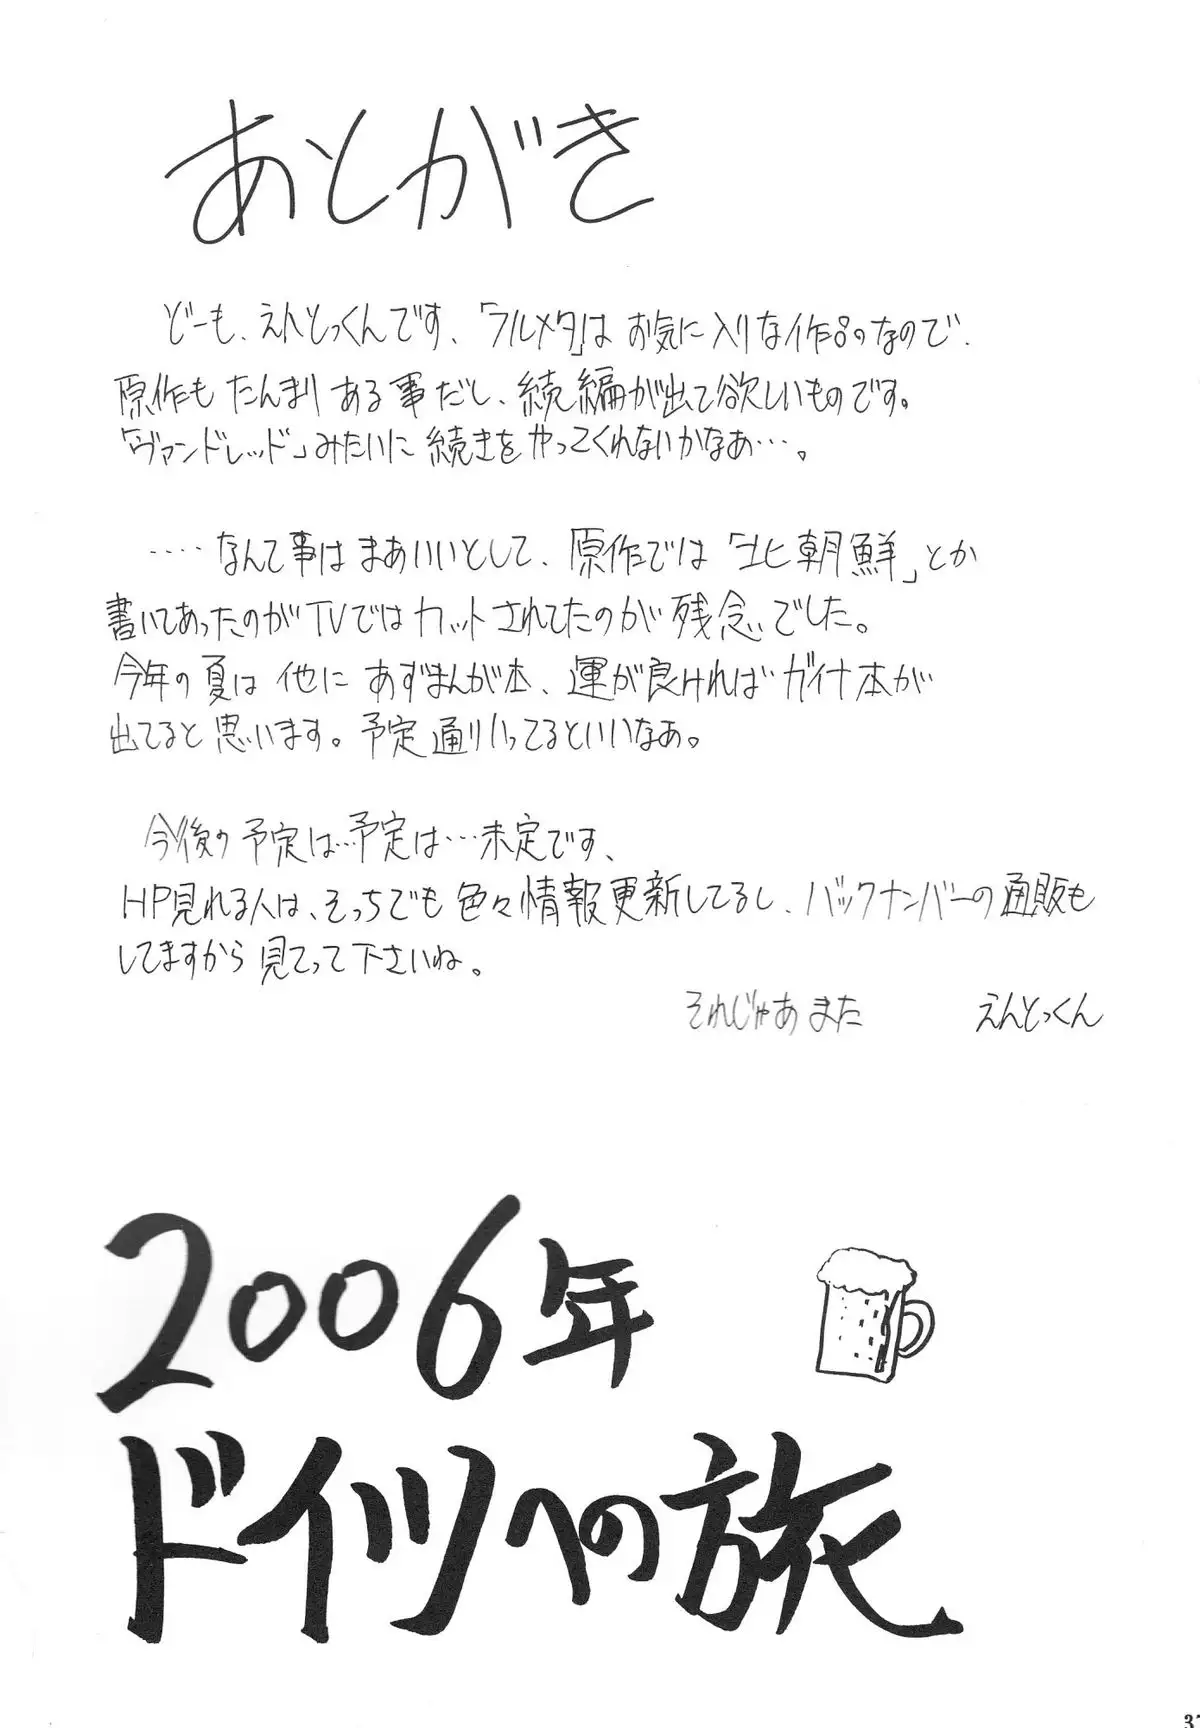 あとがき
どーも、えんとっくんです、「フルメタ」はお気に入りな作品なので、
原作もたんまりある事だし、続編が出て欲しいものです。
「ヴァンドレッド」みたいに続きをやってくれないかなあ…。
‥‥なんて事はまあいいとして、原作では「北朝鮮」とか
書いてあったのがTVではカットされてたのが残念でした。
今年の夏は他にあずまんが本、運が良ければガイナ本が
出てると思います。予定通りいってるといいなぁ。
今後の予定は…予定は…未定です、
HP見れる人は、そっちでも色々情報更新してるし、バックナンバーの通販も
してますから見てって下さいね。
それじゃあまた えんとっくん
2006年
ドイツへの旅